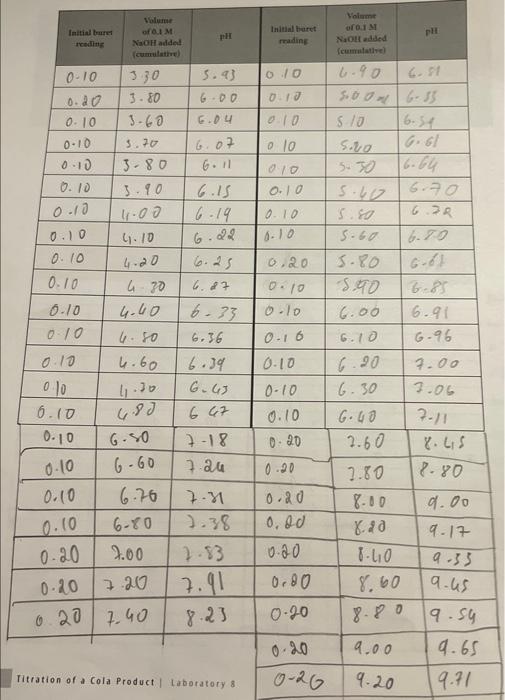 Initial buret reading Volume of 0.1 M NaOH added (cumulative) pH Initial buret reading Volume of 0.1 M NaOH added (cumulative) pH
0-10 3.30 5.93 0.10 4.90 6.51
0.20 3.80 6.00 0.10 5.00 6.55
0.10 3.60 6.04 0.10 5.10 6.59
0.10 3.70 6.07 0.10 5.20 6.61
0.10 3.80 6.11 0.10 5.30 6.64
0.10 3.90 6.15 0.10 5.40 6.70
0.10 4.00 6.19 0.10 5.50
0.10 4.10 6.22 0.10 5.60 6.80
0.10 4.20 6.25 0.20 5.80
0.10 4.30 6.27 0.10 6.85
0.10 4.40 6.33 0.10 6.00 6.91
0.10 4.50 6.36 0.10 6.10 6.96
0.10 4.60 6.39 0.10 6.20 7.00
0.10 4.70 6.43 0.10 6.30 7.06
0.10 4.80 6.47 0.10 6.40 7.11
0.10 6.50 7.18 0.20 7.60 8.45
0.10 6.60 7.24 0.20 7.80 8.80
0.10 6.70 7.31 0.20 8.00 9.00
0.10 6.80 7.38 0.20 8.20 9.17
0.20 7.00 7.53 0.20 8.40 9.33
0.20 7.20 7.91 0.20 8.60 9.45
0.20 7.40 8.23 0.20 8.80 9.54
0.20 9.00 9.65
0-20 9.20 9.71
Titration of a Cola Product | Laboratory 8